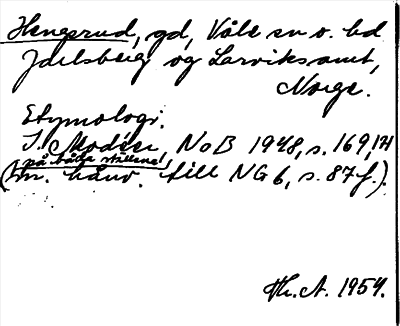 Hengsrud, gd, Våle sn o. hd
Jarlsberg og Larviksamt,
Norge.
Etymologi.
I. Modéer, NoB 1948, s. 169, 171
på båda ställena,
(m. hänv. till NG 6, s. 87 f.).
Th. A. 1954.